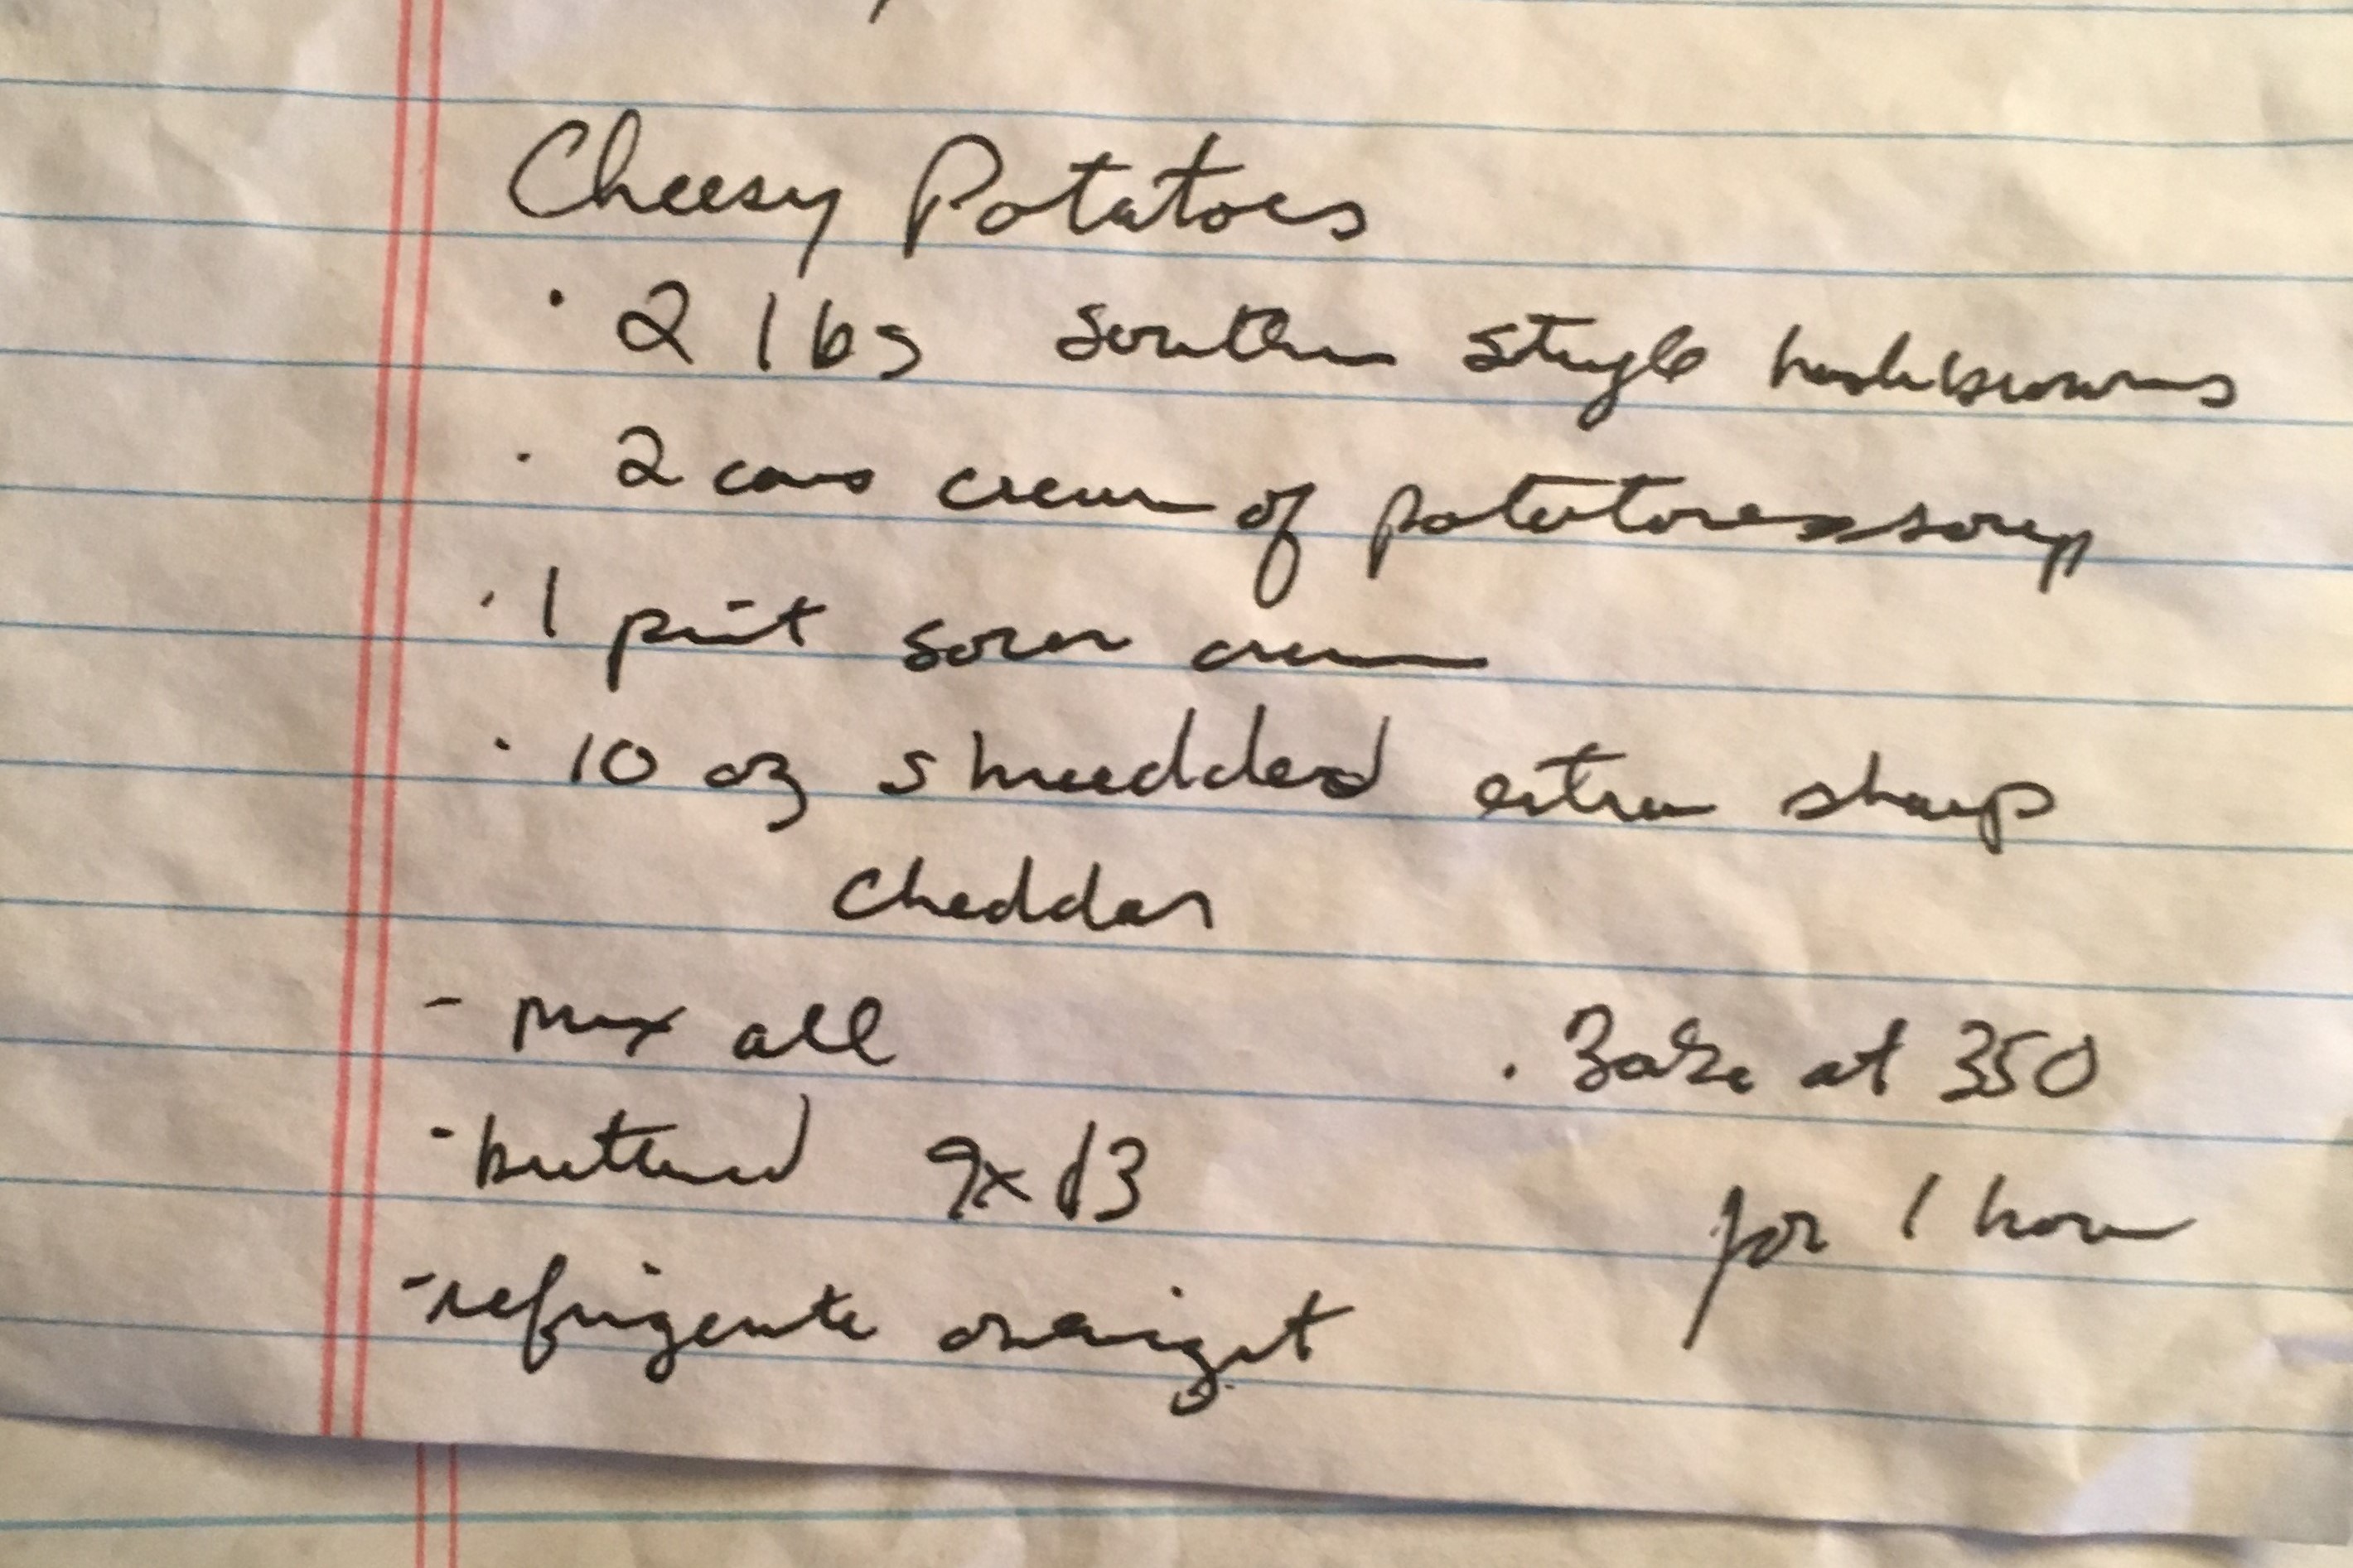 Cheesy Potatoes
· 2 lbs southern style hashbrowns
· 2 cans cream of potatoes soup
· 1 pint sour cream
· 10 oz shredded extra sharp
cheddar
- mix all
- buttered 9x13
- refrigerate overnight
· Bake at 350
for 1 hour